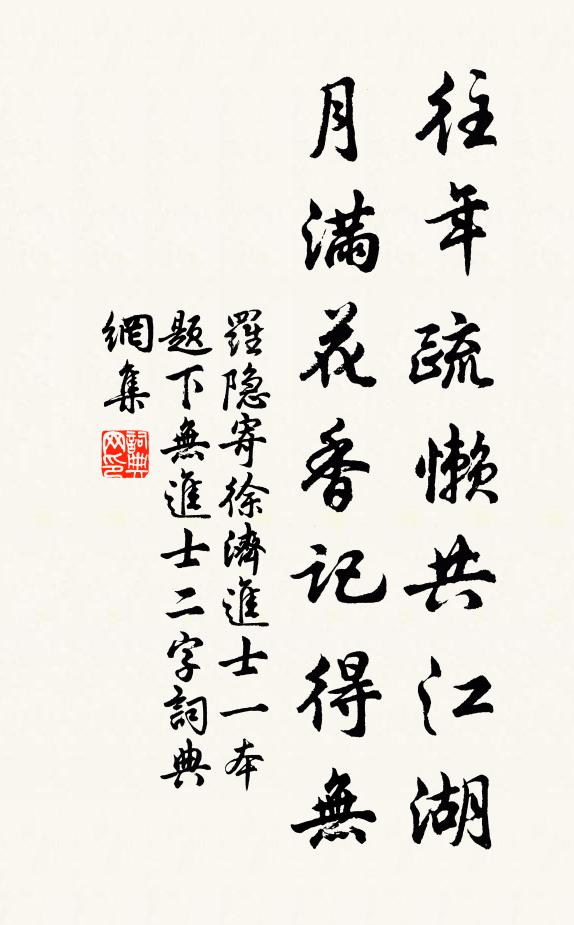 往年疏懶共江湖
月滿花香記得無
羅隐寄徐濟進士一本
题下無進士二字詞典
網集
詞典网印